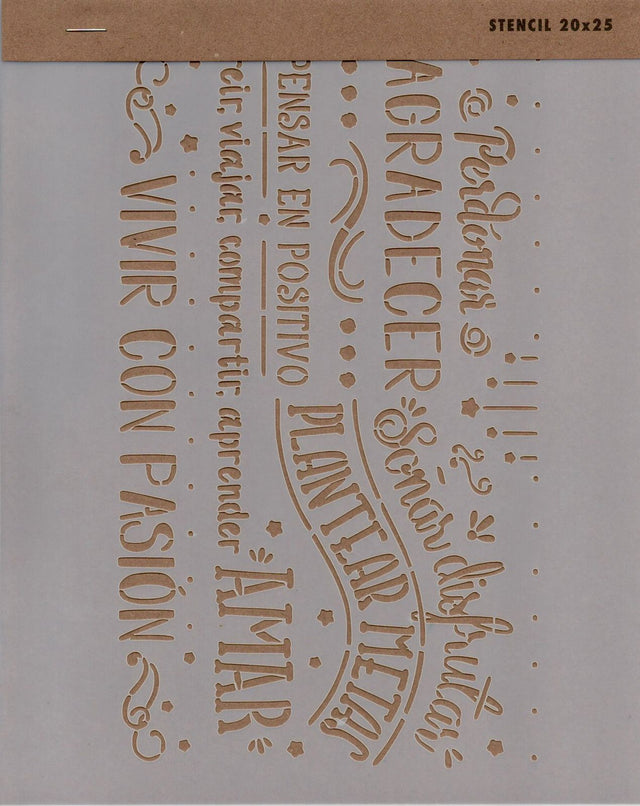 STENCIL 20x25
Perdonar
AGRADECER
Soñar disfrutar
PENSAR EN POSITIVO
PLANTEAR METAS
viajar, compartir, aprender
AMAR
VIVIR CON PASIÓN